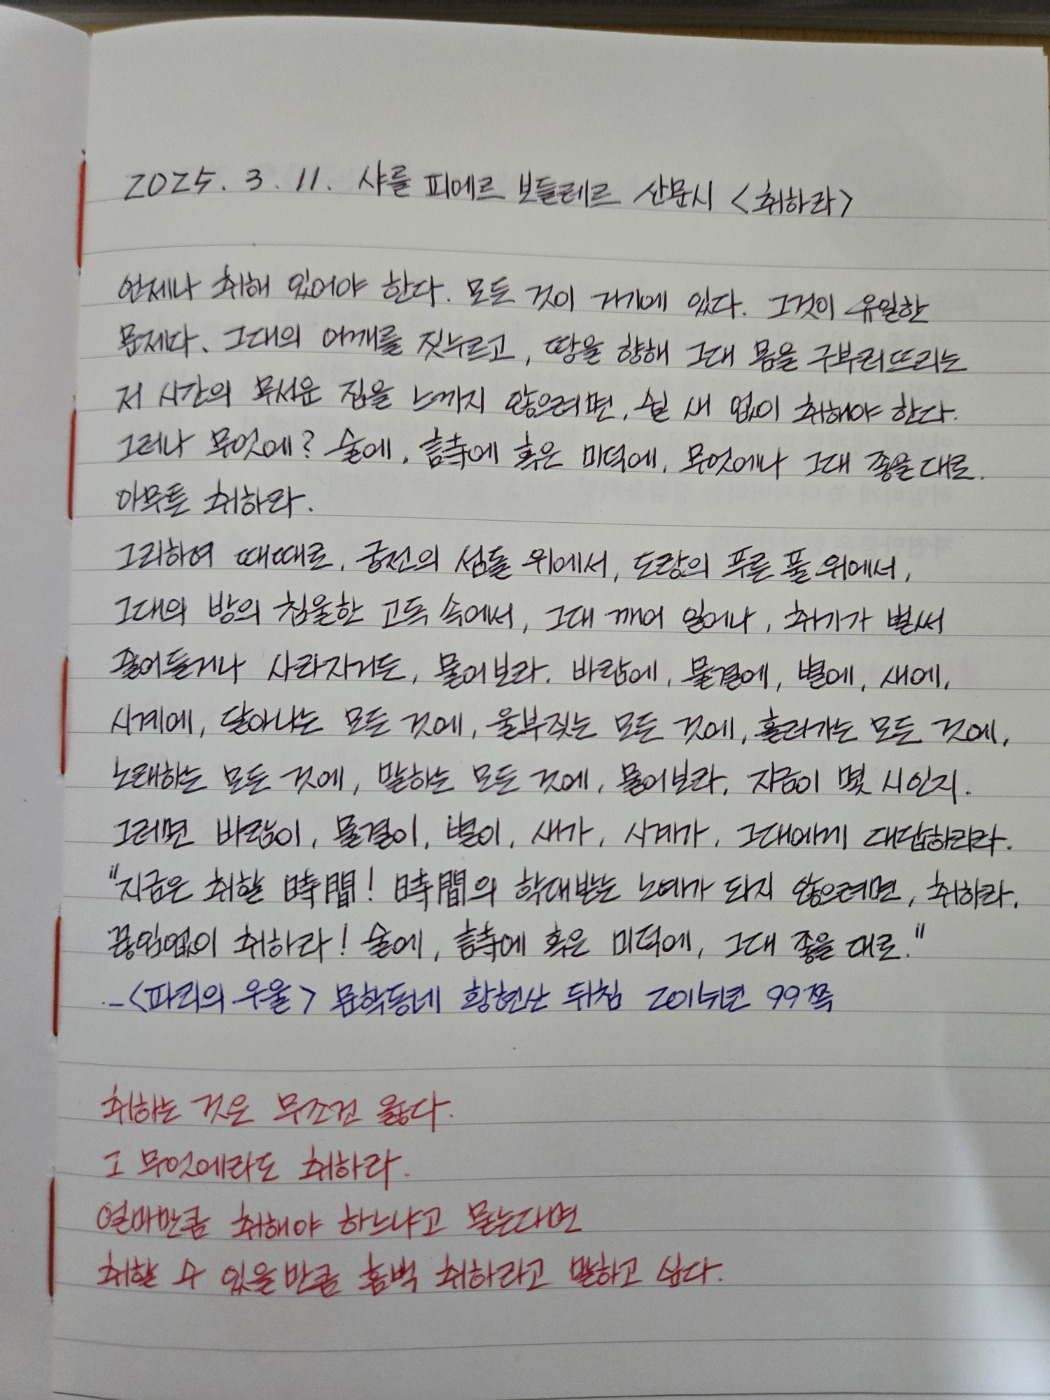 2025. 3. 11. 샤를 피에르 보들레르 산문시 <취하라>
언제나 취해 있어야 한다. 모든 것이 거기에 있다. 그것이 유일한
문제다. 그대의 어깨를 짓누르고, 땅을 향해 그대 몸을 구부러뜨리는
저 시간의 무서운 짐을 느끼지 않으려면, 쉴 새 없이 취해야 한다.
그러나 무엇에? 술에, 詩에 혹은 미덕에, 무엇에나 그대 좋을 대로.
아무튼 취하라.
그리하여 때때로, 궁전의 섬돌 위에서, 도랑의 푸른 풀 위에서,
그대의 방의 침울한 고독 속에서, 그대 깨어 일어나, 취기가 벌써
줄어들거나 사라지거든, 물어보라. 바람에, 물결에, 별에, 새에,
시계에, 달아나는 모든 것에, 울부짖는 모든 것에, 흘러가는 모든 것에,
노래하는 모든 것에, 말하는 모든 것에, 물어보라, 지금이 몇 시인지.
그러면 바람이, 물결이, 별이, 새가, 시계가, 그대에게 대답하리라.
"지금은 취할 時間! 時間의 학대받는 노예가 되지 않으려면, 취하라,
끊임없이 취하라! 술에, 詩에 혹은 미덕에, 그대 좋을 대로."
--<파리의 우울> 문학동네 황현산 뒤침 2015년 99쪽
취하는 것은 무조건 옳다.
그 무엇에라도 취하라.
얼마만큼 취해야 하느냐고 묻는다면
취할 수 있을만큼 흠뻑 취하라고 말하고 싶다.